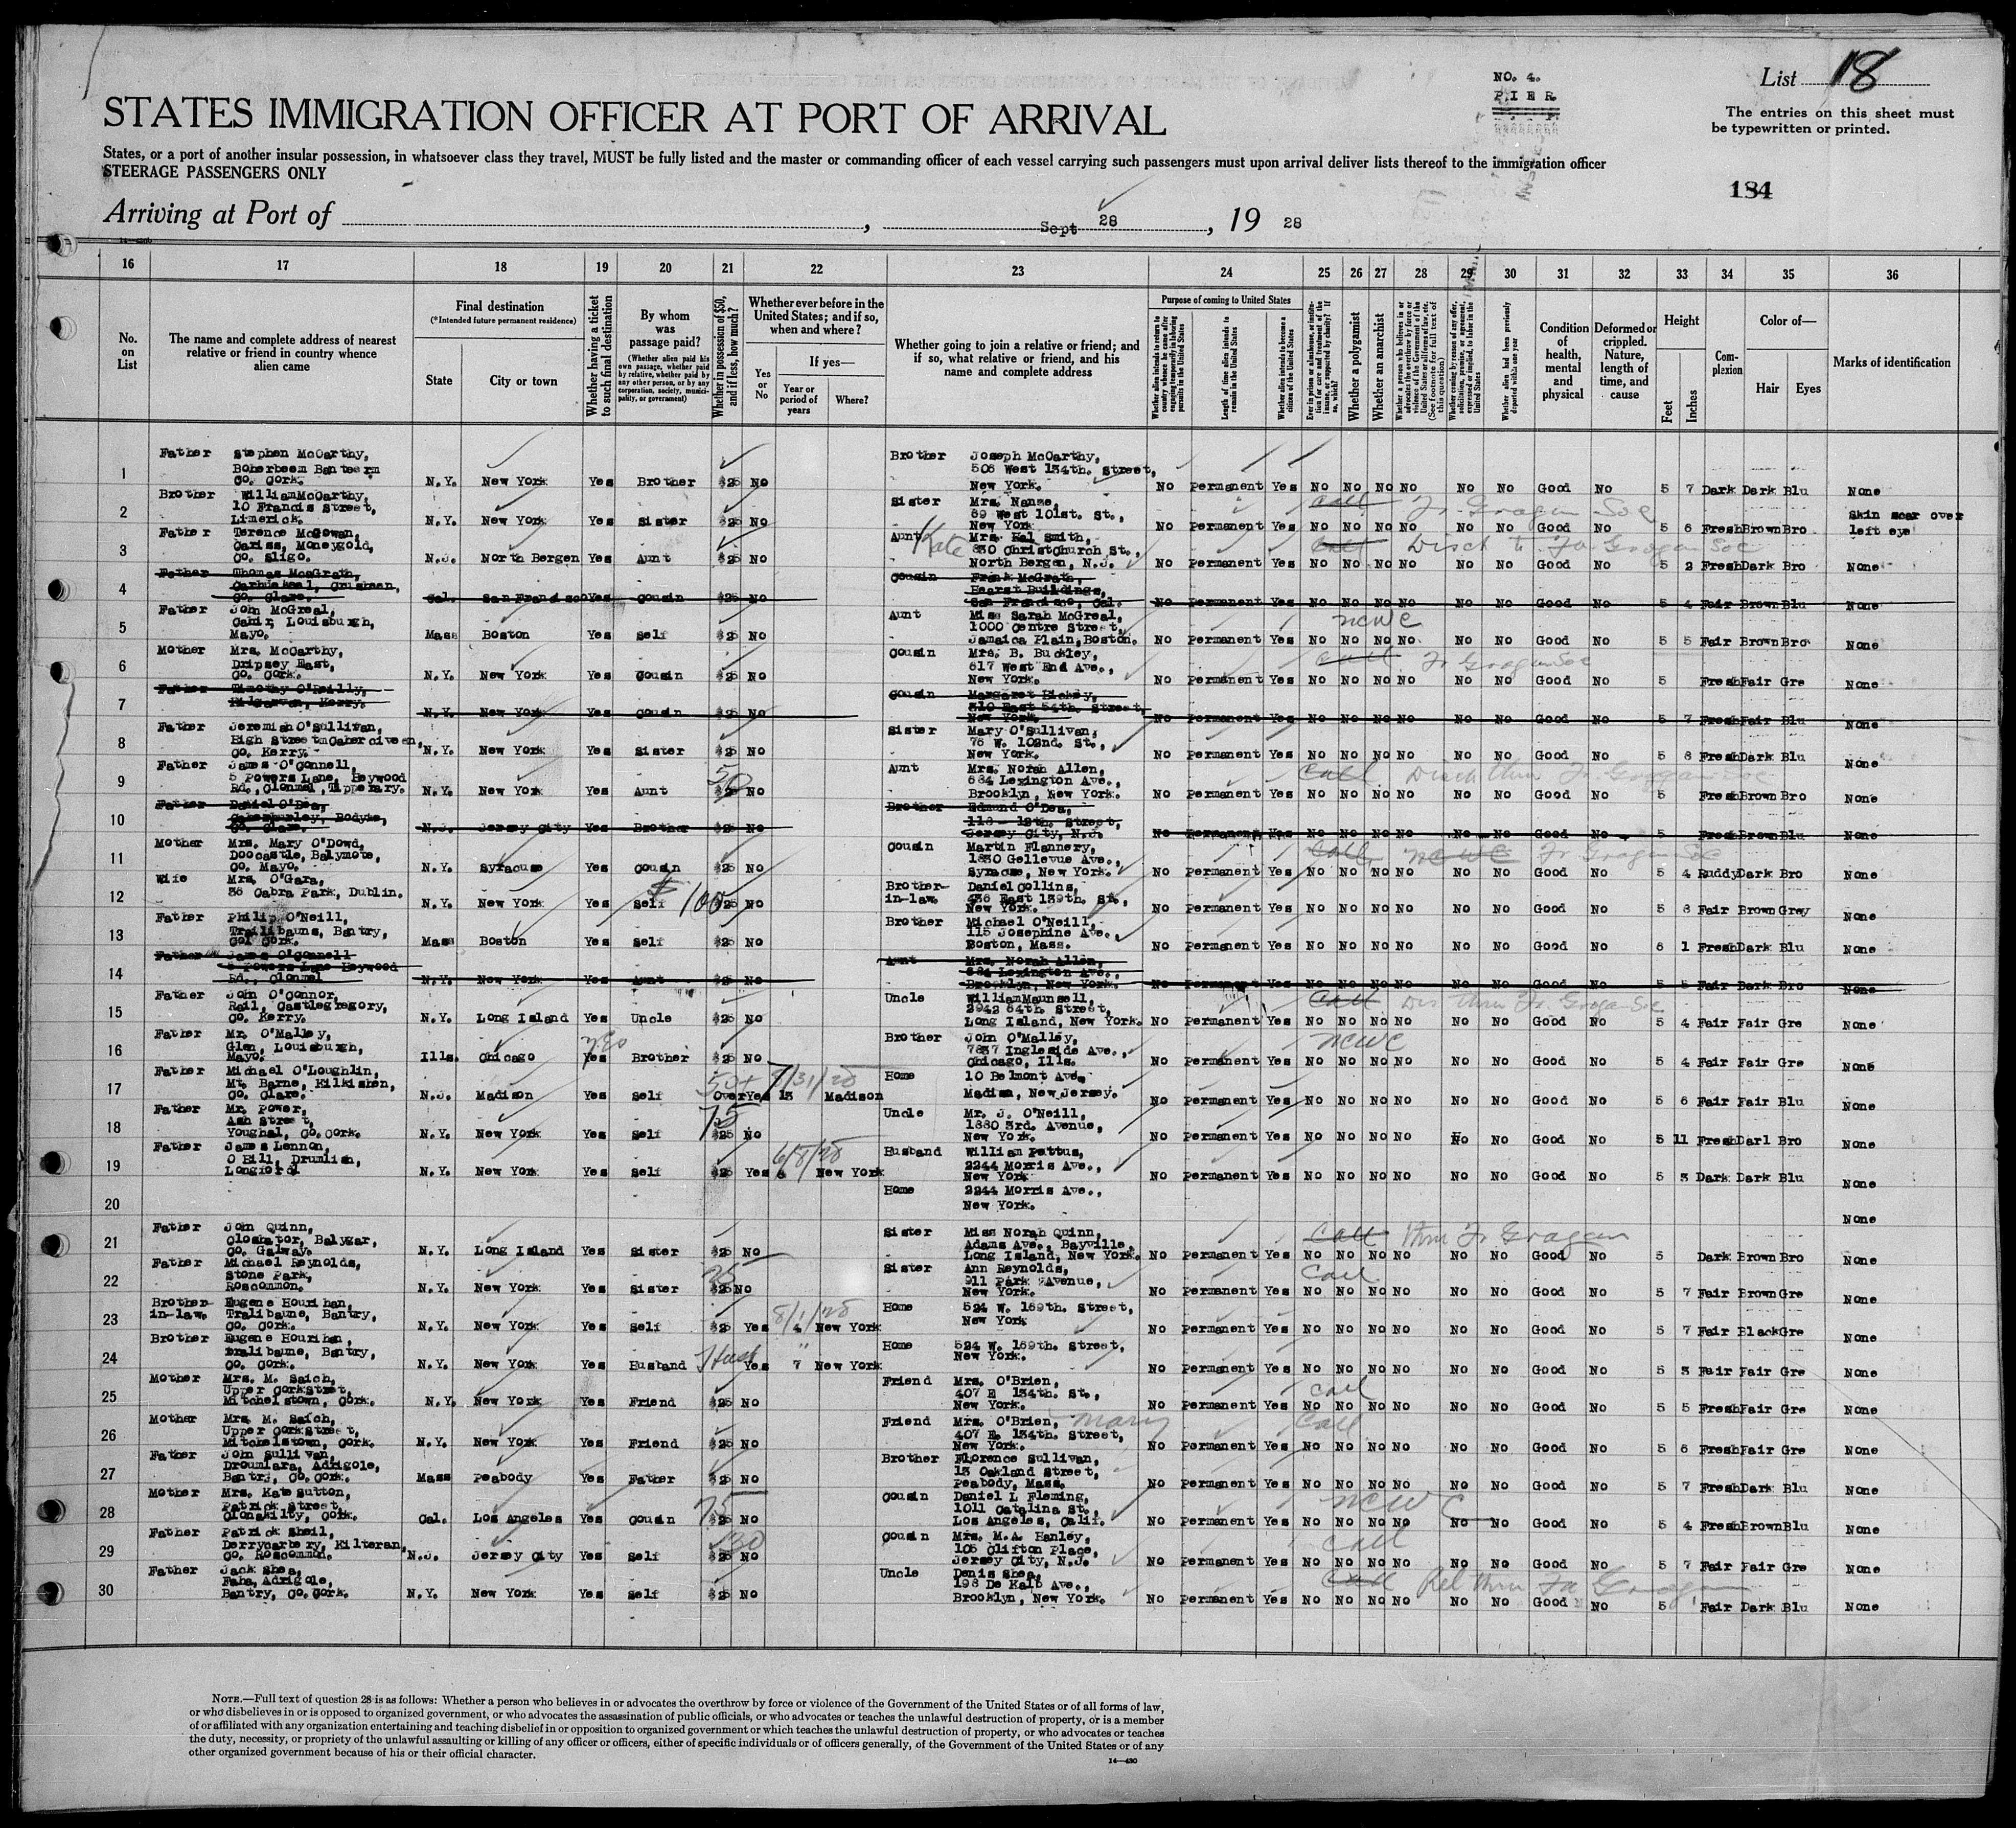 NO. 4.
PIER
List 18
STATES IMMIGRATION OFFICER AT PORT OF ARRIVAL
The entries on this sheet must
be typewritten or printed.
States, or a port of another insular possession, in whatsoever class they travel, MUST be fully listed and the master or commanding officer of each vessel carrying such passengers must upon arrival deliver lists thereof to the immigration officer
STEERAGE PASSENGERS ONLY
184
Arriving at Port of , Sept 28 , 19 28
16 17 18 19 20 21 22 23 24 25 26 27 28 29 30 31 32 33 34 35 36
No. on List
The name and complete address of nearest relative or friend in country whence alien came
Final destination
(*Intended future permanent residence)
State
City or town
Whether having a ticket to such final destination
By whom was passage paid?
(Whether alien paid his own passage, whether paid by relative, whether paid by any other person, or by any corporation, society, municipality, or government)
Whether in possession of $50, and if less, how much?
Whether ever before in the United States; and if so, when and where?
Yes or No
If yes—
Year or period of years
Where?
Whether going to join a relative or friend; and if so, what relative or friend, and his name and complete address
Purpose of coming to United States
Length of time alien intends to remain in the United States
Whether alien intends to become a citizen of the United States
Whether a polygamist
Whether an anarchist
Condition of health, mental and physical
Deformed or crippled. Nature, length of time, and cause
Height
Feet
Inches
Complexion
Color of—
Hair
Eyes
Marks of identification
1 Father Stephen McCarthy, Brother Joseph McCarthy,
Boherbeem Banteern 506 West 134th. Street,
Co. Cork. N.Y. New York Yes Brother $25 No New York. No Permanent Yes No No No No No No Good No 5 7 Dark Dark Blu None
2 Brother WilliamMcCarthy, Sister Mrs. Nanse,
10 Francis Street, 69 West 101st. St., Call Fr Grogan Soc
Limerick. N.Y. New York Yes Sister $25 No New York No Permanent Yes No No No No No No Good No 5 6 Fresh Brown Bro Skin scar over left eye
3 Father Terence McGowan, Aunt Kate Mrs. Hal Smith,
Cariss, Moneygold, 830 Christchurch St., Call Disch to Fr Grogan Soc
Co. Sligo. N.J. North Bergen Yes Aunt $25 No North Bergen, N.J. No Permanent Yes No No No No No No Good No 5 2 Fresh Dark Bro None
4 Father Thomas McGrath, Cousin Frank McGrath,
Hearst Buildings,
Co. Clare. Cal. San Francisco Yes Cousin $25 No San Francisco, Cal. No Permanent Yes No No No No No No Good No 5 4 Fair Brown Blu None
5 Father John McGreal, Aunt Miss Sarah McGreal,
Cahir, Louisburgh, 1000 Centre Street, NCWC
Mayo. Mass Boston Yes Self $25 No Jamaica Plain, Boston. No Permanent Yes No No No No No No Good No 5 5 Fair Brown Bro None
6 Mother Mrs. McCarthy, Cousin Mrs. B. Buckley,
Dripsey East, 617 West End Ave., Call Fr Grogan Soc
Co. Cork. N.Y. New York Yes Cousin $25 No New York. No Permanent Yes No No No No No No Good No 5 Fresh Fair Gre None
7 Father Timothy O'Reilly, Cousin Margaret Hickey,
Kerry. 310 East 54th. Street,
N.Y. New York Yes Cousin $25 No New York. No Permanent Yes No No No No No No Good No 5 7 Fresh Fair Blu None
8 Father Jeremiah O'Sullivan, Sister Mary O'Sullivan,
High Street Caherciveen, 76 W. 102nd. St.,
Co. Kerry. N.Y. New York Yes Sister $25 No New York. No Permanent Yes No No No No No No Good No 5 8 Fresh Dark Blu None
9 Father James O'Connell, Aunt Mrs. Norah Allen,
5 Powers Lane, Heywood 50 684 Lexington Ave., Call Disch thru Fr. Grogan Soc
Rd., Clonmel, Tipperary. N.Y. New York Yes Aunt $25 No Brooklyn, New York. No Permanent Yes No No No No No No Good No 5 Fresh Brown Bro None
10 Father Daniel O'Dea, Brother Edmund O'Dea,
Caherhurley, Bodyke, 118 - 12th. Street,
Co. Clare. N.J. Jersey City Yes Brother $25 No Jersey City, N.J. No Permanent Yes No No No No No No Good No 5 Fresh Brown Blu None
11 Mother Mrs. Mary O'Dowd, Cousin Martin Flannery,
Doocastle, Balymote, 1830 Gellevue Ave., Call NCWC Fr Grogan Soc
Co. Mayo. N.Y. Syracuse Yes Cousin $25 No Syracuse, New York. No Permanent Yes No No No No No No Good No 5 4 Ruddy Dark Bro None
12 Wife Mrs. O'Gara, Brother-in-law. Daniel Collins,
36 Cabra Park, Dublin. $100 436 East 139th. St.,
N.Y. New York Yes Self $25 No New York. No Permanent Yes No No No No No No Good No 5 8 Fair Brown Grey None
13 Father Philip O'Neill, Brother Michael O'Neill,
Trailibaune, Bantry, 115 Josephine Ave.,
Co. Cork. Mass Boston Yes Self $25 No Boston, Mass. No Permanent Yes No No No No No No Good No 6 1 Fresh Dark Blu None
14 Father James O'Connell Aunt Mrs. Norah Allen,
5 Powers Lane Heywood 684 Lexington Ave.,
Rd., Clonmel N.Y. New York Yes Aunt $25 No Brooklyn, New York. No Permanent Yes No No No No No No Good No 5 5 Fair Dark Bro None
15 Father John O'Connor, Uncle WilliamMaunsell,
Rail, Castlegregory, 2942 54th. Street, Call Dis thru Fr. Grogan Soc
Co. Kerry. N.Y. Long Island Yes Uncle $25 No Long Island, New York. No Permanent Yes No No No No No No Good No 5 4 Fair Fair Gre None
16 Father Mr. O'Malley, Brother John O'Malley,
Glen, Louisburgh, Yes 7837 Ingleside Ave., NCWC
Mayo. Ills. Chicago Yes Brother $25 No Chicago, Ills. No Permanent Yes No No No No No No Good No 5 4 Fair Fair Gre None
17 Father Michael O'Loughlin, Home 10 Belmont Ave.
Mt. Barne, Kilkishen, 50+ 7/31/28
Co. Clare. N.J. Madison Yes Self Over Yes 13 Madison Madisn, New Jersey. No Permanent Yes No No No No No No Good No 5 6 Fair Fair Blu None
18 Father Mr. Power, Uncle Mr. J. O'Neill,
Ash Street, 75 1880 3rd. Avenue,
Youghal, Co. Cork. N.Y. New York Yes Self $25 No New York. No Permanent Yes No No No No No No Good No 5 11 Fresh Darl Bro None
19 Father James Lennon, Husband William Pattus,
O Hill, Drumlish, 6/8/28 2244 Morris Ave.,
Longford N.Y. New York Yes Self $25 Yes 6 New York New York No Permanent Yes No No No No No No Good No 5 3 Dark Dark Blu None
20 Home 2244 Morris Ave.,
New York. None
21 Father John Quinn, Sister Miss Norah Quinn,
Closhator, Balygar, Adams Ave., Bayville, Call thru Fr Grogan
Co. Galway. N.Y. Long Island Yes Sister $25 No Long Island, New York. No Permanent Yes No No No No No No Good No 5 Dark Brown Bro None
22 Father Michael Reynolds, Sister Ann Reynolds,
Stone Park, 911 Park Avenue, Call
Roscommon. N.Y. New York Yes Sister $25 No New York. No Permanent Yes No No No No No No Good No 5 7 Fair Brown Gre None
23 Brother-in-law. Eugene Hourihan, Home 524 W. 169th. Street,
Tralibaune, Bantry, 8/1/28
Co. Cork. N.Y. New York Yes Self $25 Yes 4 New York New York No Permanent Yes No No No No No No Good No 5 7 Fair Black Gre None
24 Brother Eugene Hourihan, Home 524 W. 169th. Street,
Tralibaune, Bantry, Husb " New York.
Co. Cork. N.Y. New York Yes Husband Yes 7 New York No Permanent Yes No No No No No No Good No 5 3 Fair Fair Gre None
25 Mother Mrs. M. Saich, Friend Mrs. O'Brien,
Upper Corkstret, 407 E 134th. St., Call
Mitchelstown, Cork. N.Y. New York Yes Friend $25 No New York. No Permanent Yes No No No No No No Good No 5 5 Fresh Fair Gre None
26 Mother Mrs. M. Saich, Friend Mrs. O'Brien, Mary
Upper Corkstreet, 407 E. 134th. Street, Call
Mitchelstown, Cork. N.Y. New York Yes Friend $25 No New York. No Permanent Yes No No No No No No Good No 5 6 Fresh Fair Gre None
27 Father John Sullivan, Brother Florence Sullivan,
Droumlara, Adrigole, 13 Oakland Street,
Bantry, Co. Cork. Mass Peabody Yes Father $25 No Peabody, Mass. No Permanent Yes No No No No No No Good No 5 7 Fresh Dark Blu None
28 Mother Mrs. Kate Sutton, Cousin Daniel L Fleming,
Patrick Street, 75 1011 Catalina St., NCWC
Clonakilty, Cork. Cal. Los Angeles Yes Cousin $25 No Los Angeles, Calif. No Permanent Yes No No No No No No Good No 5 4 Fresh Brown Blu None
29 Father Patrick Sheil, Cousin Mrs. M.A. Hanley,
Derrycarbery, Kilteran, 30 105 Clifton Place, Call
Co. Roscommon. N.J. Jersey City Yes Self $25 No Jersey City, N.J. No Permanent Yes No No No No No No Good No 5 7 Fair Fair Gre None
30 Father Jack Shea, Uncle Denis Shea,
Faha, Adrigole, 198 De Kalb Ave., Call Rel thru Fr Grogan
Bantry, Co. Cork. N.Y. New York Yes Self $25 No Brooklyn, New York. No Permanent Yes No No No No No No Good No 5 Fair Dark Blu None
NOTE.—Full text of question 28 is as follows: Whether a person who believes in or advocates the overthrow by force or violence of the Government of the United States or of all forms of law,
or who disbelieves in or is opposed to organized government, or who advocates the assassination of public officials, or who advocates or teaches the unlawful destruction of property, or is a member
of or affiliated with any organization entertaining and teaching disbelief in or opposition to organized government or which teaches the unlawful destruction of property, or who advocates or teaches
the duty, necessity, or propriety of the unlawful assaulting or killing of any officer or officers, either of specific individuals or of officers generally, of the Government of the United States or of any
other organized government because of his or their official character.
14—430